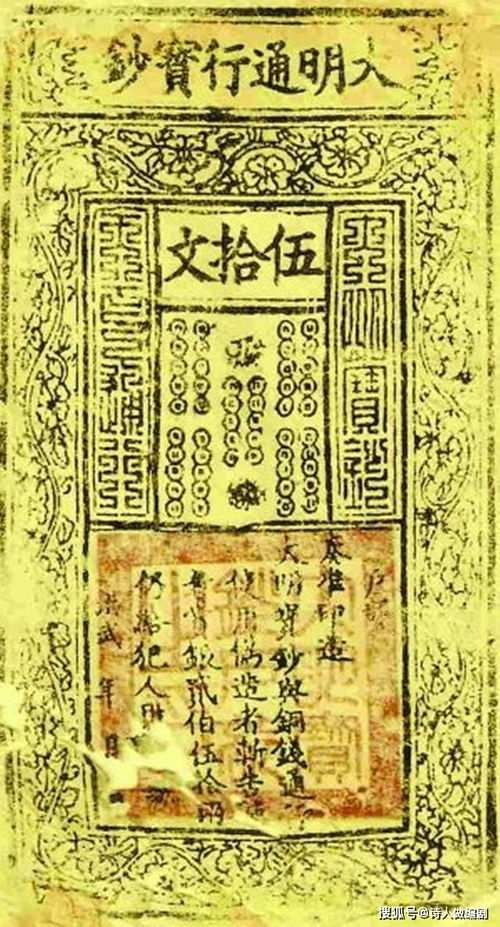 大明通行寶鈔
伍拾文
大明寶鈔
天下通行
户部
奏准印造
大明寶鈔與銅錢通
使用偽造者斬告捕
者賞銀貳伯伍拾兩
仍給犯人財
洪武 年 月
搜狐号@诗人做编剧